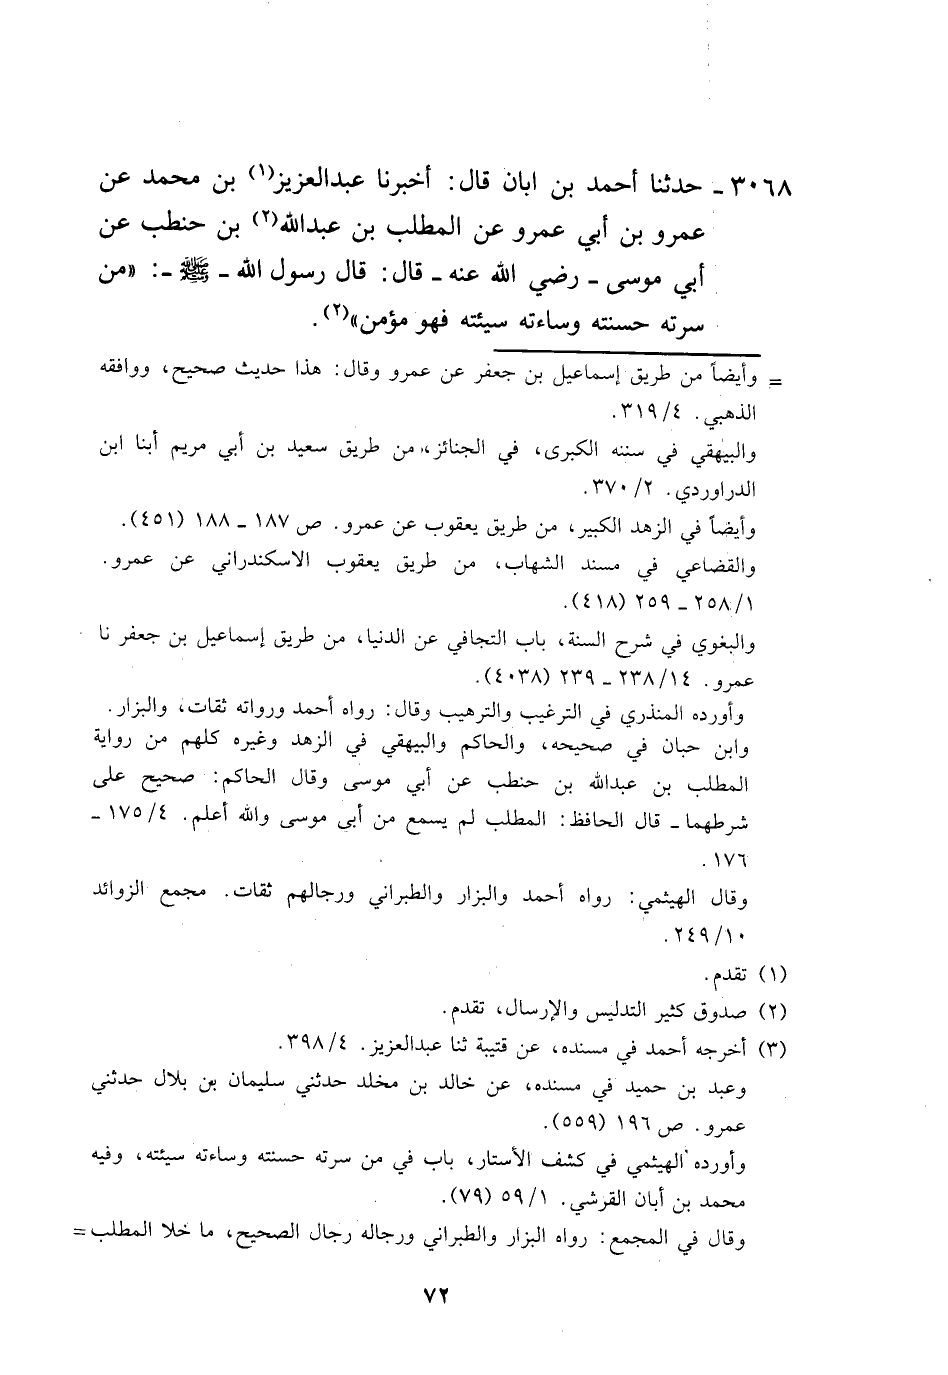 ٣٠٦٨ ـ حدثنا أحمد بن ابان قال: أخبرنا عبدالعزيز(١) بن محمد عن
عمرو بن أبي عمرو عن المطلب بن عبدالله(٢) بن حنطب عن
أبي موسى ـ رضي الله عنه ـ قال: قال رسول الله ـ ﷺ ـ: «من
سرته حسنته وساءته سيئته فهو مؤمن»(٢).
= وأيضاً من طريق إسماعيل بن جعفر عن عمرو وقال: هذا حديث صحيح، ووافقه
الذهبي. ٣١٩/٤.
والبيهقي في سننه الكبرى، في الجنائز، من طريق سعيد بن أبي مريم أبنا ابن
الدراوردي. ٣٧٠/٢.
وأيضاً في الزهد الكبير، من طريق يعقوب عن عمرو. ص ١٨٧ ـ ١٨٨ (٤٥١).
والقضاعي في مسند الشهاب، من طريق يعقوب الاسكندراني عن عمرو.
٢٥٨/١ ـ ٢٥٩ (٤١٨).
والبغوي في شرح السنة، باب التجافي عن الدنيا، من طريق إسماعيل بن جعفر نا
عمرو. ٢٣٨/١٤ ـ ٢٣٩ (٤٠٣٨).
وأورده المنذري في الترغيب والترهيب وقال: رواه أحمد ورواته ثقات، والبزار.
وابن حبان في صحيحه، والحاكم والبيهقي في الزهد وغيره كلهم من رواية
المطلب بن عبدالله بن حنطب عن أبي موسى وقال الحاكم: صحيح على
شرطهما ـ قال الحافظ: المطلب لم يسمع من أبي موسى والله أعلم. ١٧٥/٤ ـ
١٧٦.
وقال الهيثمي: رواه أحمد والبزار والطبراني ورجالهم ثقات. مجمع الزوائد
٢٤٩/١٠.
(١) تقدم.
(٢) صدوق كثير التدليس والإرسال، تقدم.
(٣) أخرجه أحمد في مسنده، عن قتيبة ثنا عبدالعزيز. ٣٩٨/٤.
وعبد بن حميد في مسنده، عن خالد بن مخلد حدثني سليمان بن بلال حدثني
عمرو. ص ١٩٦ (٥٥٩).
وأورده الهيثمي في كشف الأستار، باب في من سرته حسنته وساءته سيئته، وفيه
محمد بن أبان القرشي. ٥٩/١ (٧٩).
وقال في المجمع: رواه البزار والطبراني ورجاله رجال الصحيح، ما خلا المطلب =
٧٢